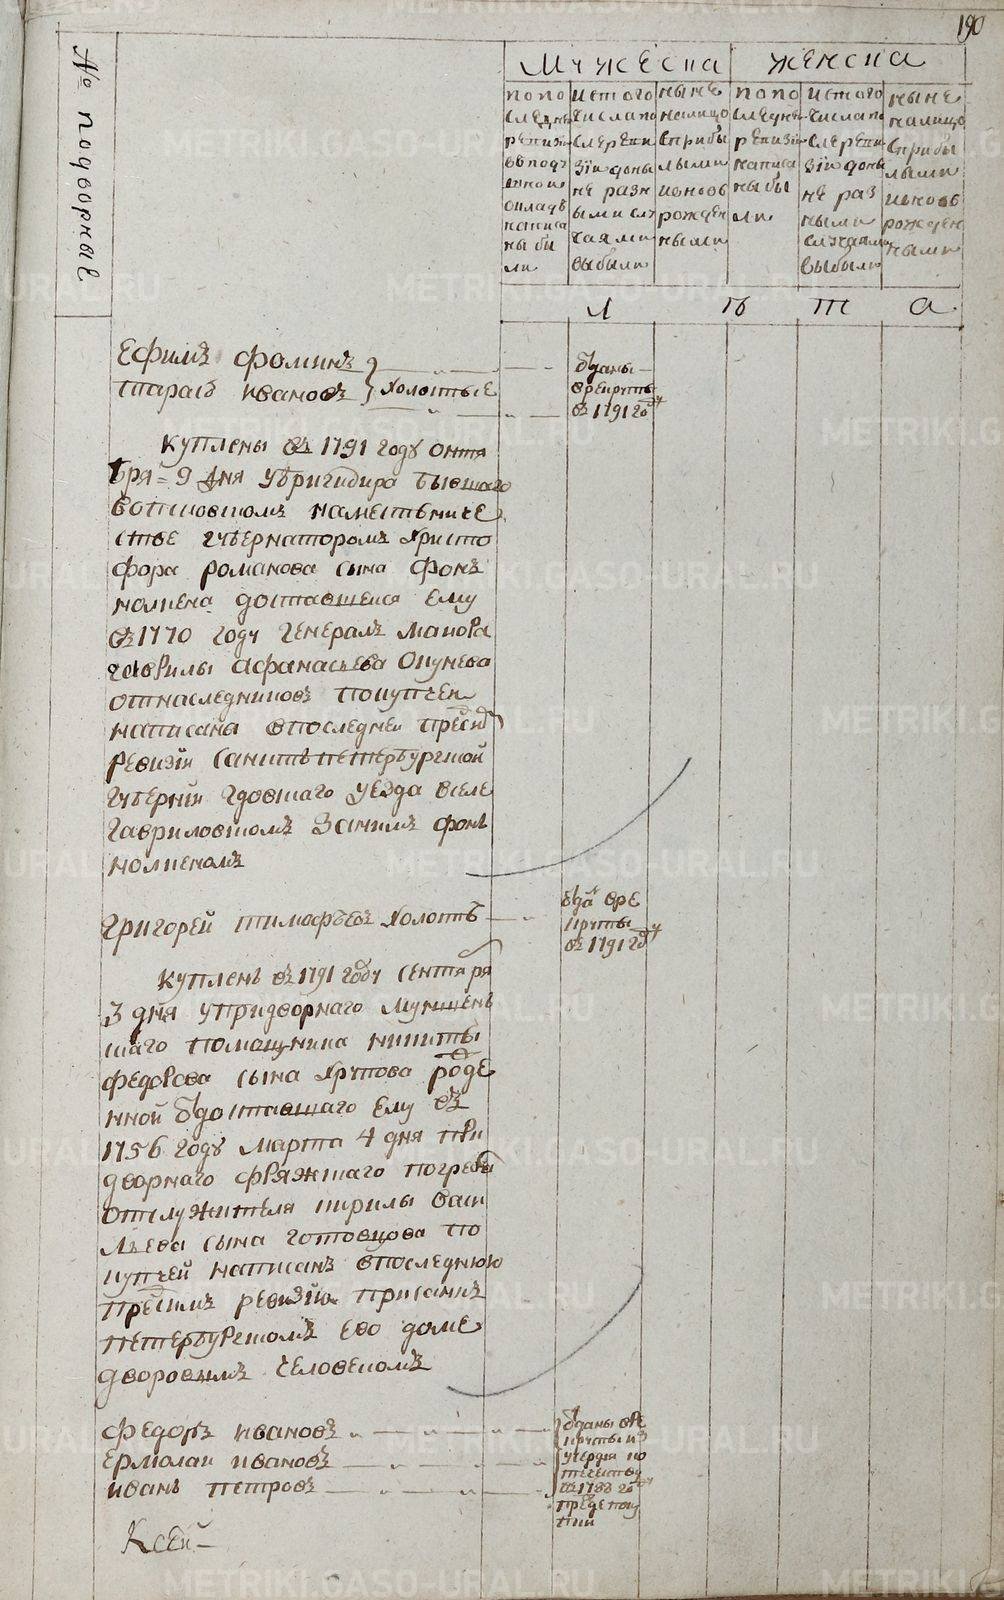 190
№ подворные
Мужеска
женска
попо
следне
ревизи
вподу
шном
окладе
написа
ны бы
ли
истого
числапо
слереви
зіи доны
не разн
ыми слу
чаями
выбыли
ныне
налицо
сприбы
лыми
ивновь
рожден
ными
попо
следне
ревизіи
написа
ны бы
ли
истого
числапо
слереви
зіи доны
не раз
ными
случаями
выбыли
ныне
налицо
сприбы
лыми
ивновь
рожден
ными
л ѣ т а
Ефимъ Фоминъ
тарасъ ивановъ } холостые
ѿданы
врекруты
въ 1791 году
куплены въ 1791 году октя
бря 9 дня убригидира бывшаго
впсковскомъ наместниче
стве губернаторомъ христо
фора романова сына фонъ
нолкена доставшеися ему
въ 1770 году генералъ маиора
гаврилы афанасьева окунева
отнаследниковъ покупкеи
написана впоследнеи пресид
ревизіи санктъпетербургской
губерніи гдовшаго уезда вселе
гавриловскомъ занимъ фонъ
нолкеномъ
григорей тимофѣевъ холостъ
ѿданъ вре
круты
въ 1791 году
купленъ въ 1791 году сентября
3 дня упридворнаго мункшен
шаго помощника никиты
федорова сына крупова роде
нной ѿдоставшаго ему въ
1756 году марта 4 дня при
дворнаго фряжшаго погреба
отслужителя кирилы васи
льева сына готовцова по
купкей написанъ впоследнюю
пресимъ ревизію присанкъ
петербургскомъ ево доме
дворовымъ человекомъ
федоръ ивановъ
ермолаи ивановъ
иванъ петровъ
ѿданы вре
круты из
усердія ко
отечеству
въ 1788 году
преде поку
пки
Ксей